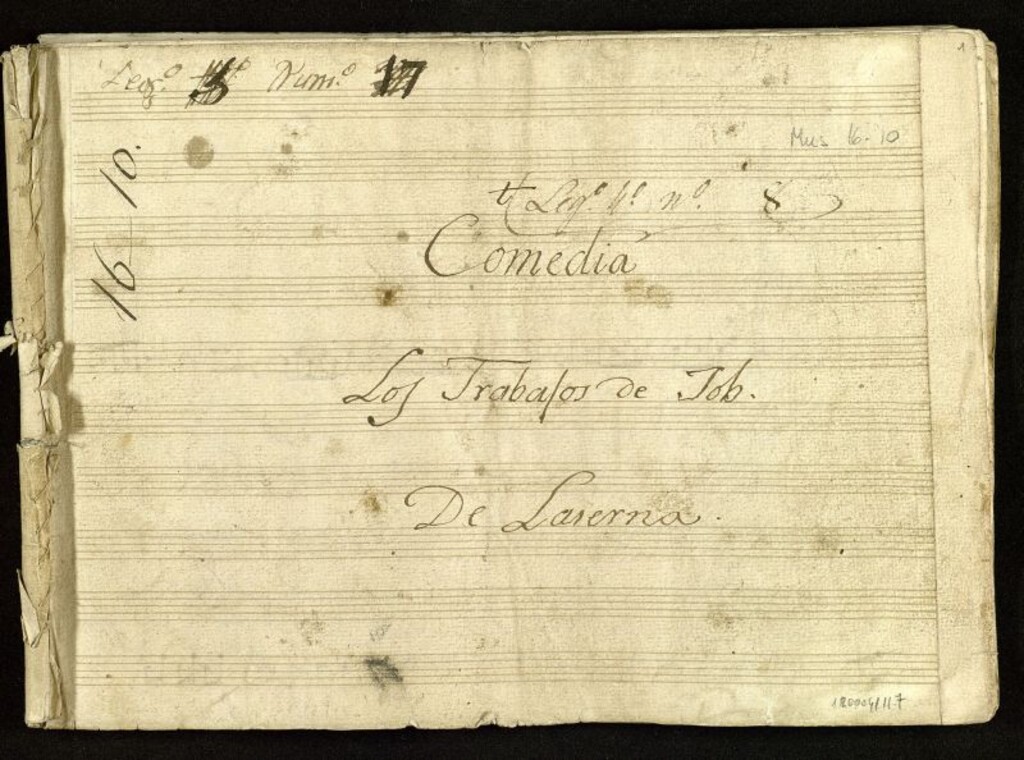 1
Leg.º 5 Num.º 17
Mus 16-10
16 10.
Leg.º 4.º n.º 8
Comedia
Los Trabajos de Job.
De Laserna.